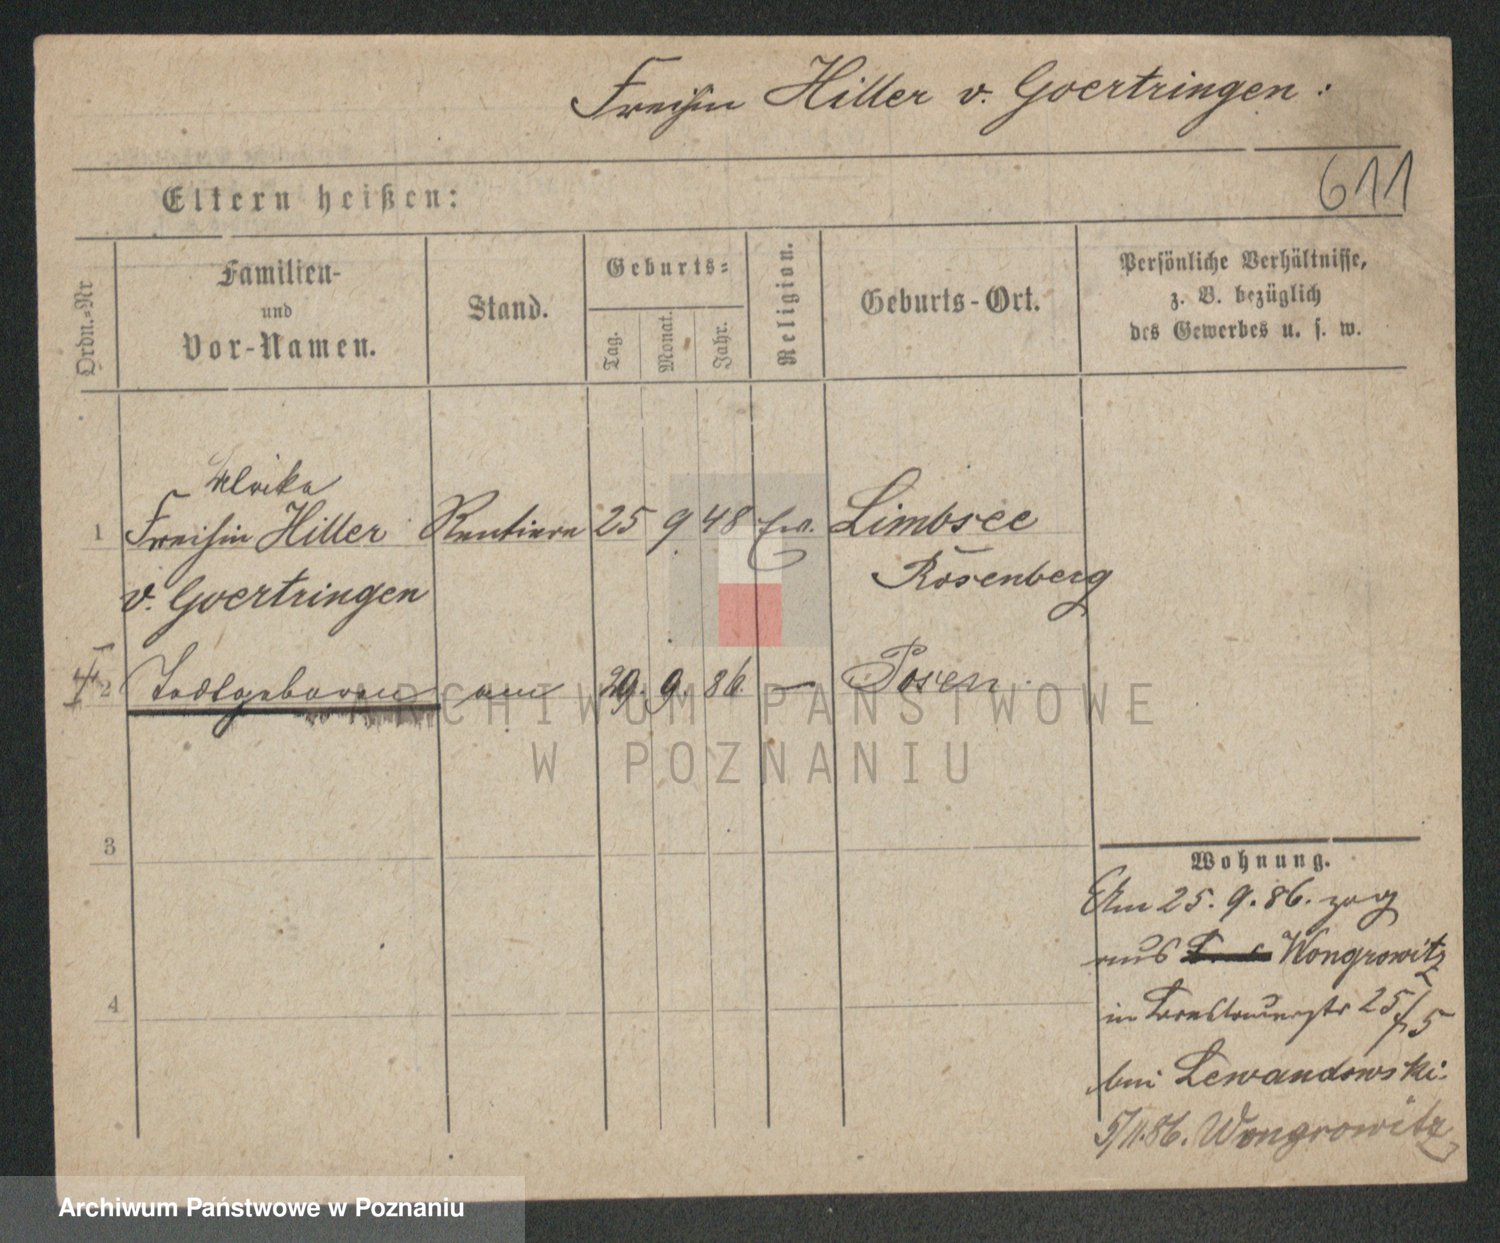 Freifin Hiller v. Goertringen :
611
Eltern heißen:
Ordn.=Nr
Familien-
und
Vor-Namen.
Stand.
Geburts=
Tag.
Monat.
Jahr.
Religion.
Geburts-Ort.
Persönliche Verhältnisse,
z. B. bezüglich
des Gewerbes u. s. w.
Ulrike
1 Freifin Hiller Rentiere 25 9 48 Ev. Limbsee
v. Goertringen Rosenberg
2 Todtgeboren am 29. 9. 86. — Posen
ARCHIWUM PAŃSTWOWE
W POZNANIU
3
4
Wohnung.
Am 25. 9. 86. zog
aus Wongrowitz
in 25/5
bei Lewandowski.
5/11.86. Wongrowitz
Archiwum Państwowe w Poznaniu